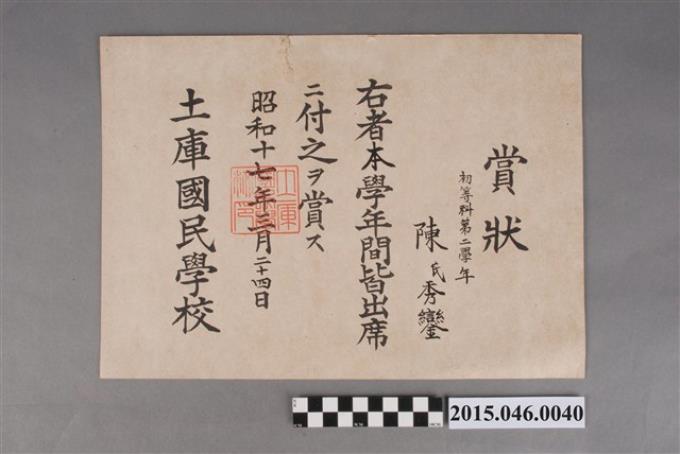 賞狀
初等科第二學年
陳氏秀鑾
右者本學年間皆出席
ニ付之ヲ賞ス
昭和十七年三月二十四日
土庫國民學校
2015.046.0040